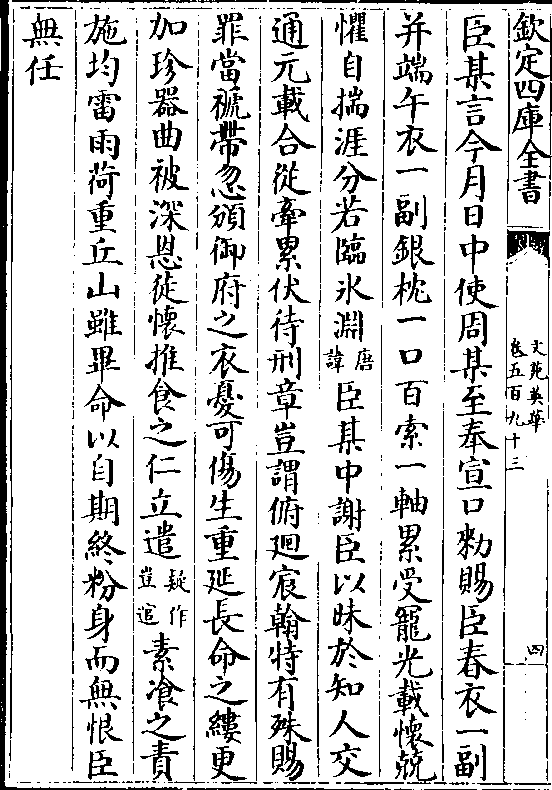 欽定四庫全書
文苑英華
卷五百九十三
四
臣某言今月日中使周某至奉宣口勅賜臣春衣一副
并端午衣一副銀枕一口百索一軸累受寵光載懷兢
懼自揣涯分若臨氷淵唐諱臣某中謝臣以昧於知人交
通元載合從牽累伏待刑章豈謂俯廻宸翰特有殊賜
罪當褫帶忽頒御府之衣憂可傷生重延長命之縷更
加珍器曲被深恩徒懷推食之仁立遣疑作豈逭素飡之責
施均雷雨荷重丘山雖畢命以自期終粉身而無恨臣
無任